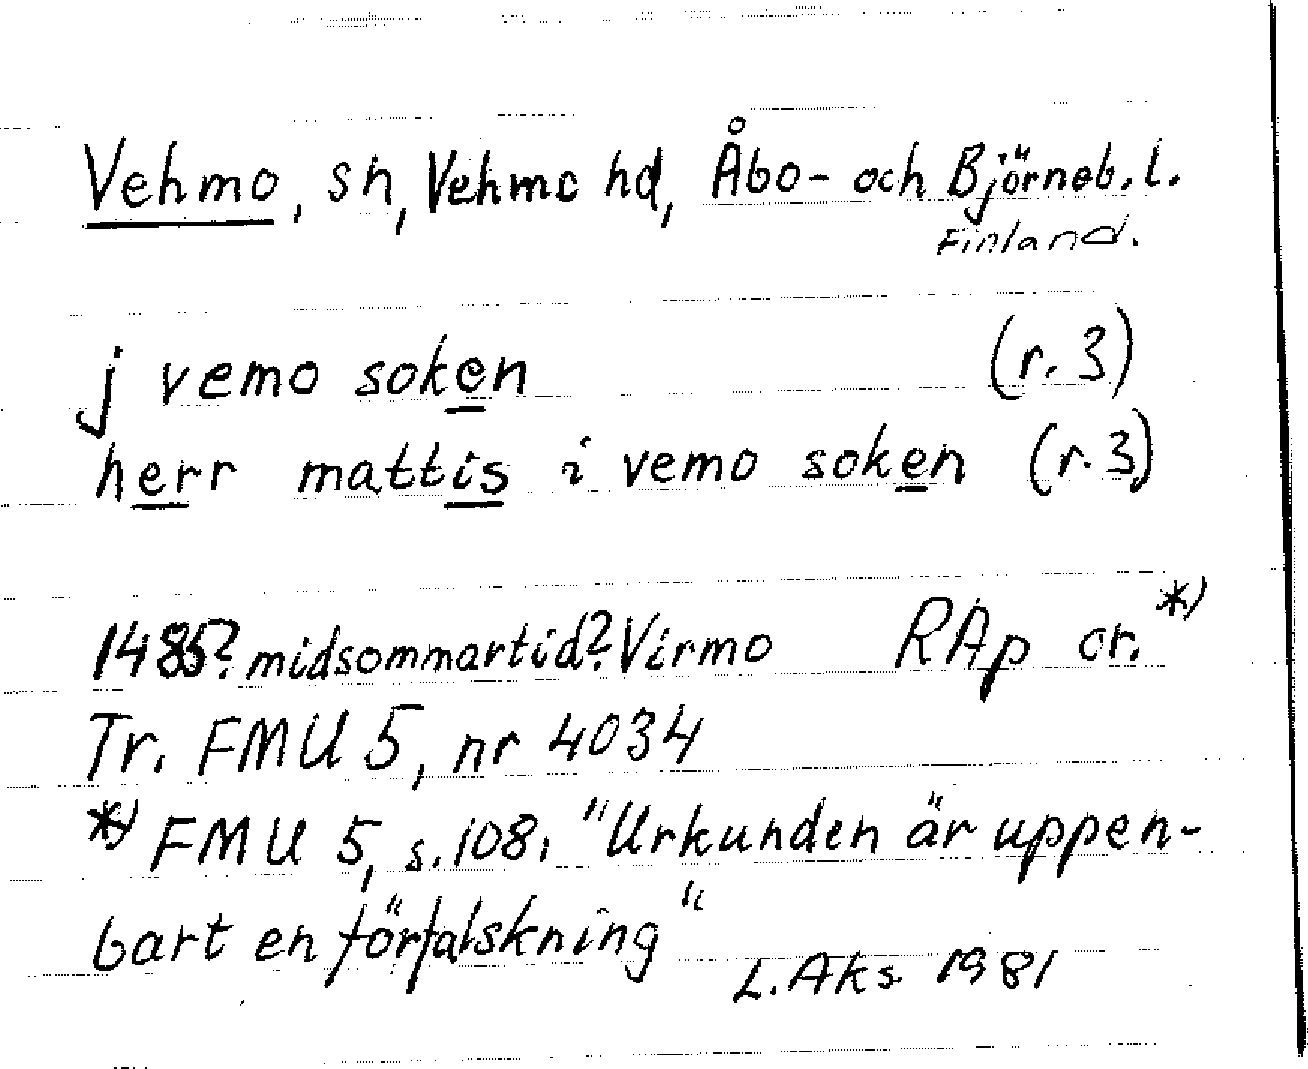 Vehmo, sn, Vehmo hd, Åbo- och Björneb. l.
Finland.
j vemo soken (r. 3)
herr mattis i vemo soken (r. 3)
1485? midsommartid? Virmo RAp or. *)
Tr. FMU 5, nr 4034
*) FMU 5, s. 108, "Urkunden är uppen-
bart en förfalskning"
L. Aks 1981